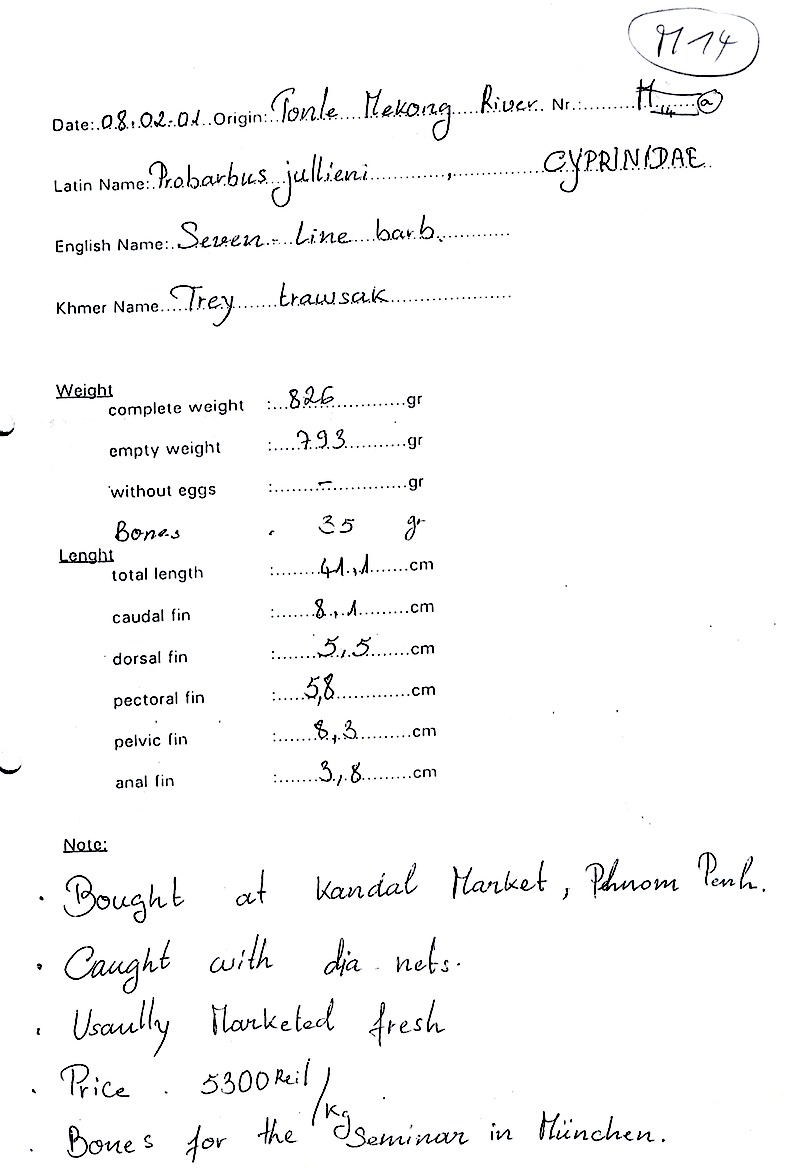 M14
Date:.08.02.01..Origin: Tonle Mekong River.. Nr.:........M 14 a
Latin Name: Probarbus jullieni............,............ CYPRINIDAE
English Name: Seven-Line barb.............
Khmer Name....Trey trawsak......................
Weight
complete weight :...826............gr
empty weight :....793..........gr
without eggs :........–............gr
Bones . 35 gr
Lenght
total length :.......41,1.......cm
caudal fin :.......8,1.........cm
dorsal fin :.......5,5.......cm
pectoral fin :.....5,8............cm
pelvic fin :.......8,3.........cm
anal fin :.......3,8.........cm
Note:
. Bought at Kandal Market, Phnom Penh.
. Caught with dia nets.
. Usaully Marketed fresh
. Price . 5300 Reil/Kg
. Bones for the Seminar in München.